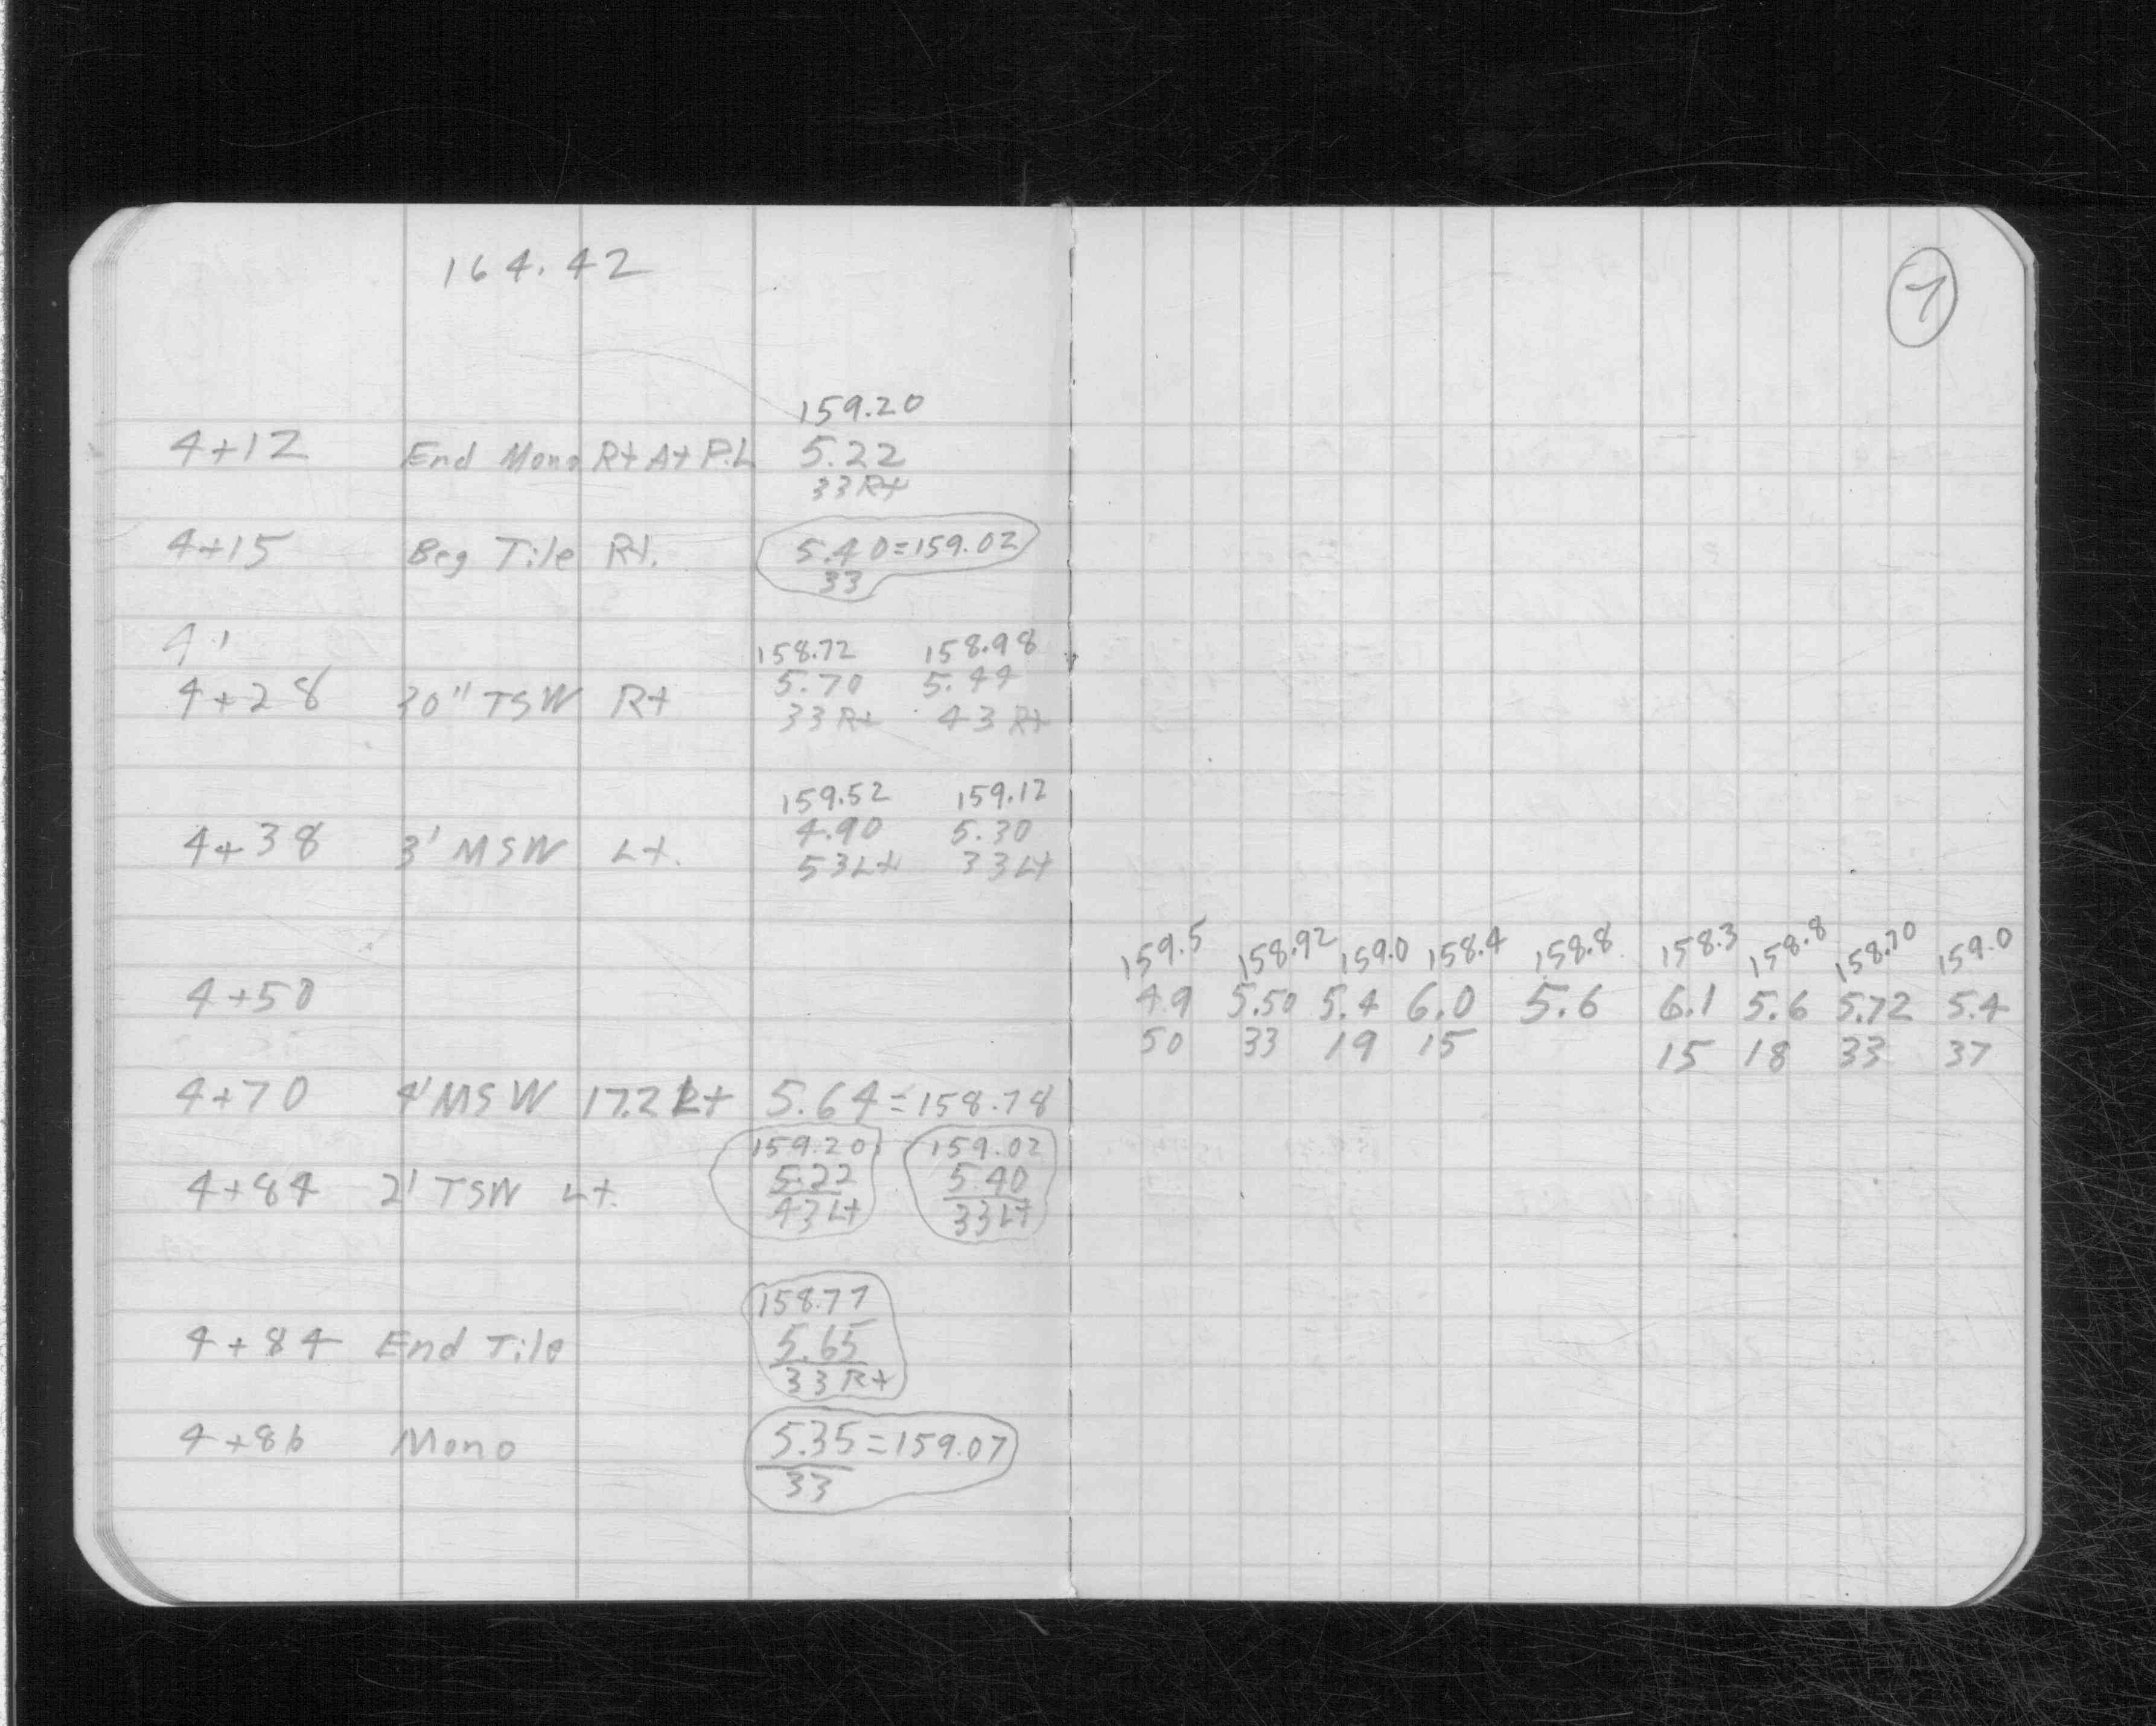 164.42
7
159.20
4+12 End Mono Rt At P.L 5.22
33 Rt
4+15 Beg Tile Rt. 5.40=159.02
33
158.72 158.98
4+28 30" TSW Rt 5.70 5.44
33 Rt 43 Rt
159.52 159.12
4+38 3' MSW Lt. 4.90 5.30
53 Lt 33 Lt
159.5 158.92 159.0 158.4 158.8 158.3 158.8 158.70 159.0
4+50 4.9 5.50 5.4 6.0 5.6 6.1 5.6 5.72 5.4
50 33 19 15 15 18 33 37
4+70 4' MSW 17.2 Lt 5.64=158.78
159.20 159.02
4+84 2' TSW Lt. 5.22 5.40
43 Lt 33 Lt
158.77
4+84 End Tile 5.65
33 Rt
4+86 Mono 5.35=159.07
33